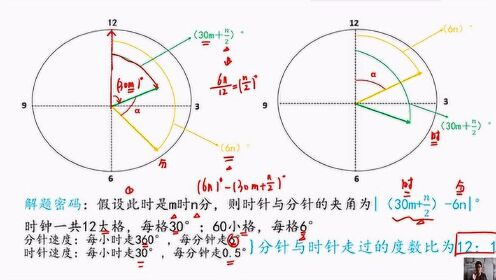 12
12
(30m+n/2)°
(6n)°
(30m)°
6n/12=(n/2)°
α
α
9
3
9
3
(6n)°
分
(30m+n/2)°
时
6
6
①
(6n)°-(30m+n/2)°
时 分
解题密码：假设此时是m时n分，则时针与分针的夹角为|(30m+n/2)-6n|°
时钟一共12大格，每格30°；60小格，每格6°
分针速度：每小时走360°，每分钟走6°
时针速度：每小时走30°，每分钟走0.5°
}分针与时针走过的度数比为12：1